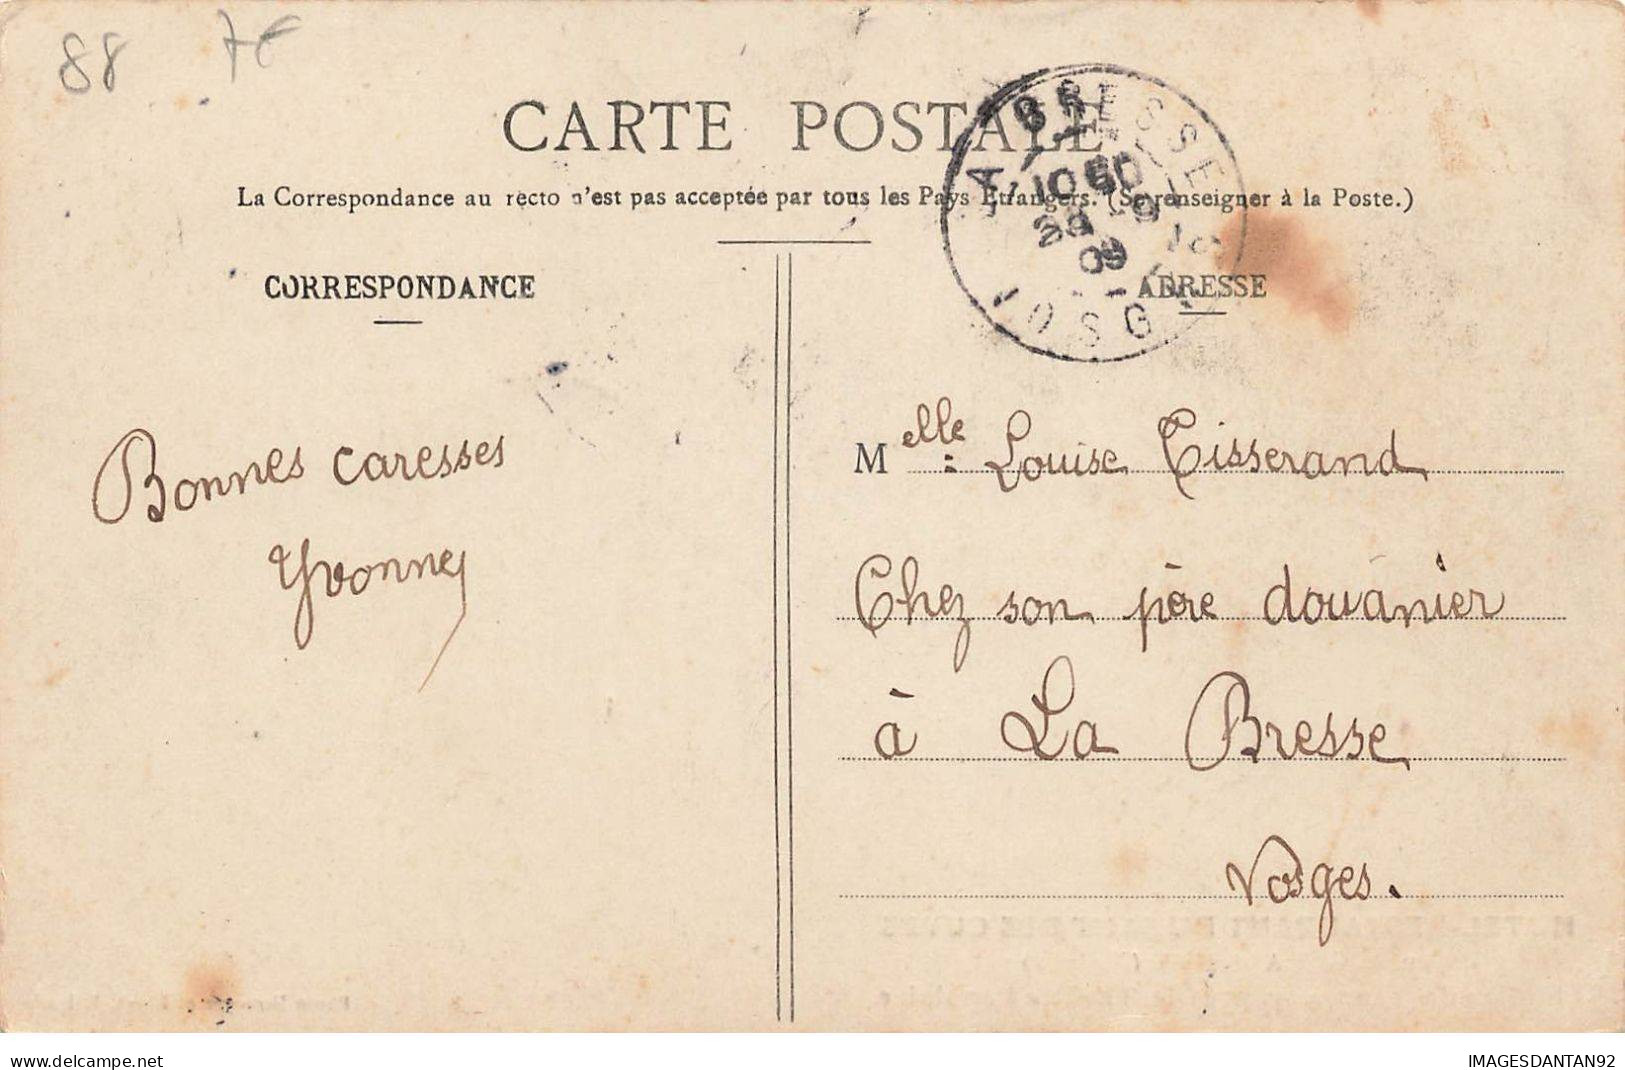 88 7€
CARTE POSTALE
La Correspondance au recto n'est pas acceptée par tous les Pays Etrangers. (Se renseigner à la Poste.)
LA BRESSE
10 50
29 -9
09
VOSGES
CORRESPONDANCE
ADRESSE
Bonnes caresses
Yvonne
Melle: Louise Tisserand
Chez son père douanier
à La Bresse
Vosges.
www.delcampe.net
IMAGESDANTAN92